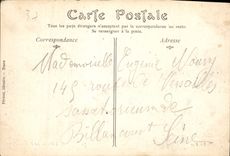 Carte Postale
Tous les pays étrangers n'acceptent pas la correspondance au verso.
Se renseigner à la poste.
Correspondance
Adresse
Mademoiselle Eugénie
145 route de Versailles
Billancourt Seine